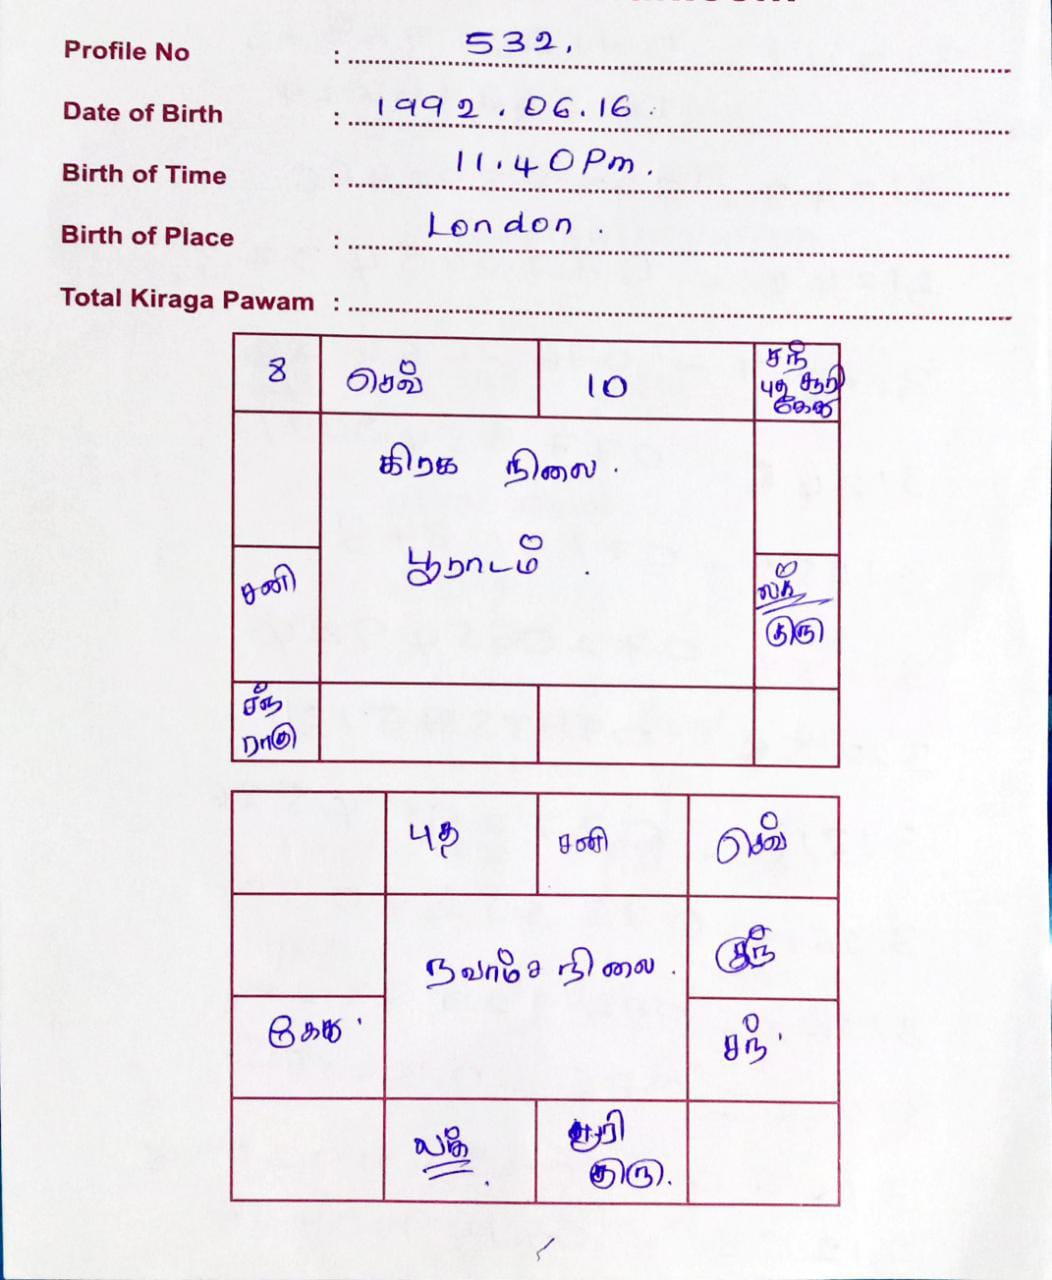 Profile No : 532.
Date of Birth : 1992.06.16.
Birth of Time : 11.40 Pm.
Birth of Place : London.
Total Kiraga Pawam :
8
செவ்
10
சந்
புத சூரி
கேது
கிரக நிலை.
பூராடம்.
சனி
லக்
குரு
சந்
ராகு
புத
சனி
செவ்
நவாம்ச நிலை.
கேது.
சந்.
லக்
சூரி
குரு.